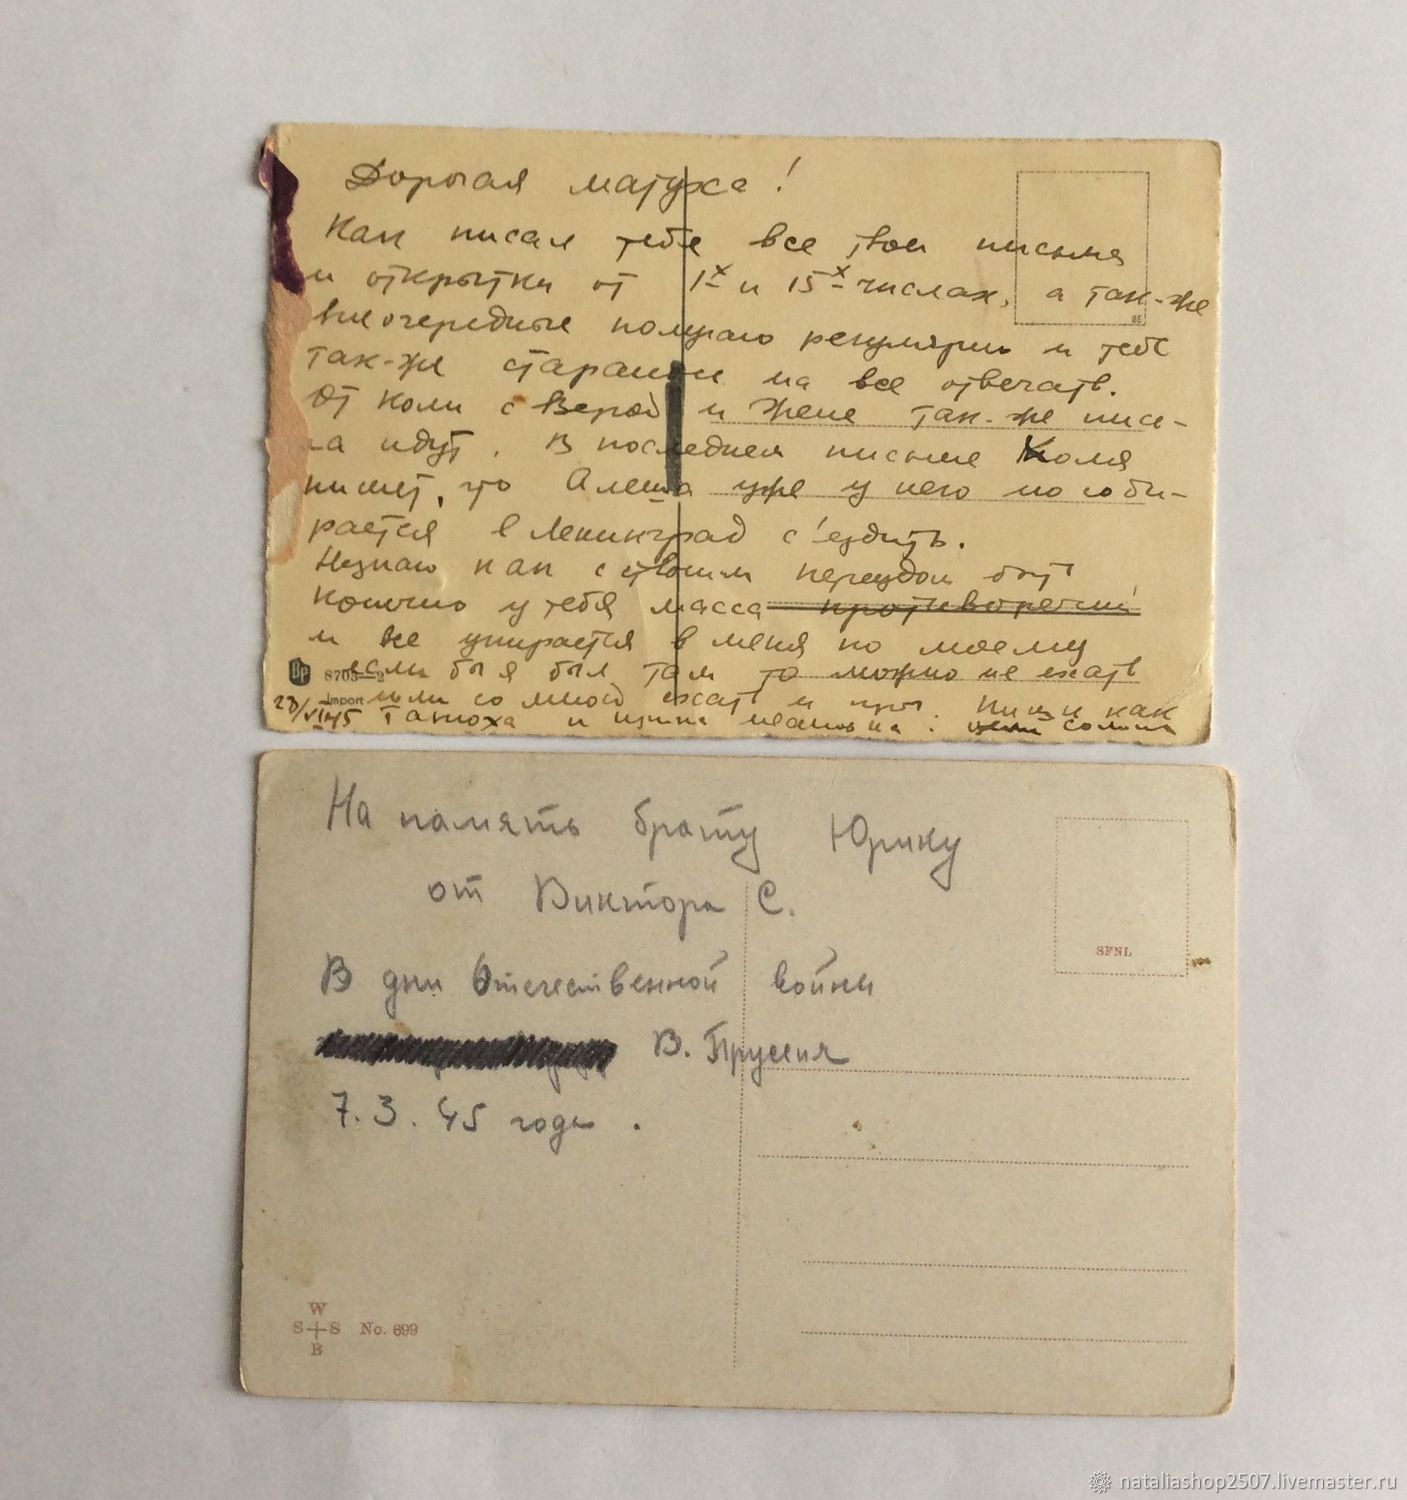 Дорогая матуха!
Как писал тебе все твои письма
и открытки от 1х и 15х числах, а так-же
внеочередные получаю регулярно и тебе
так-же стараюсь на все отвечать.
От Коли с Верой и Жене так-же пись-
ма идут. В последнем письме Коля
пишет, что Алеша уже у него но соби-
рается в Ленинград с'ездить.
Незнаю как с твоим переездом быть
конечно у тебя масса противоречий
и все упирается в меня по моему
если бы я был там то можно не ехать
8705-2
или со мной ехать и
Пиши как
Import
28/VI 45 Танюха и
SFNL
На память брату Юрику
от Виктора С.
В дни Отечественной войны
В. Пруссия
7.3.45 года.
W
S S No. 699
B
nataliashop2507.livemaster.ru